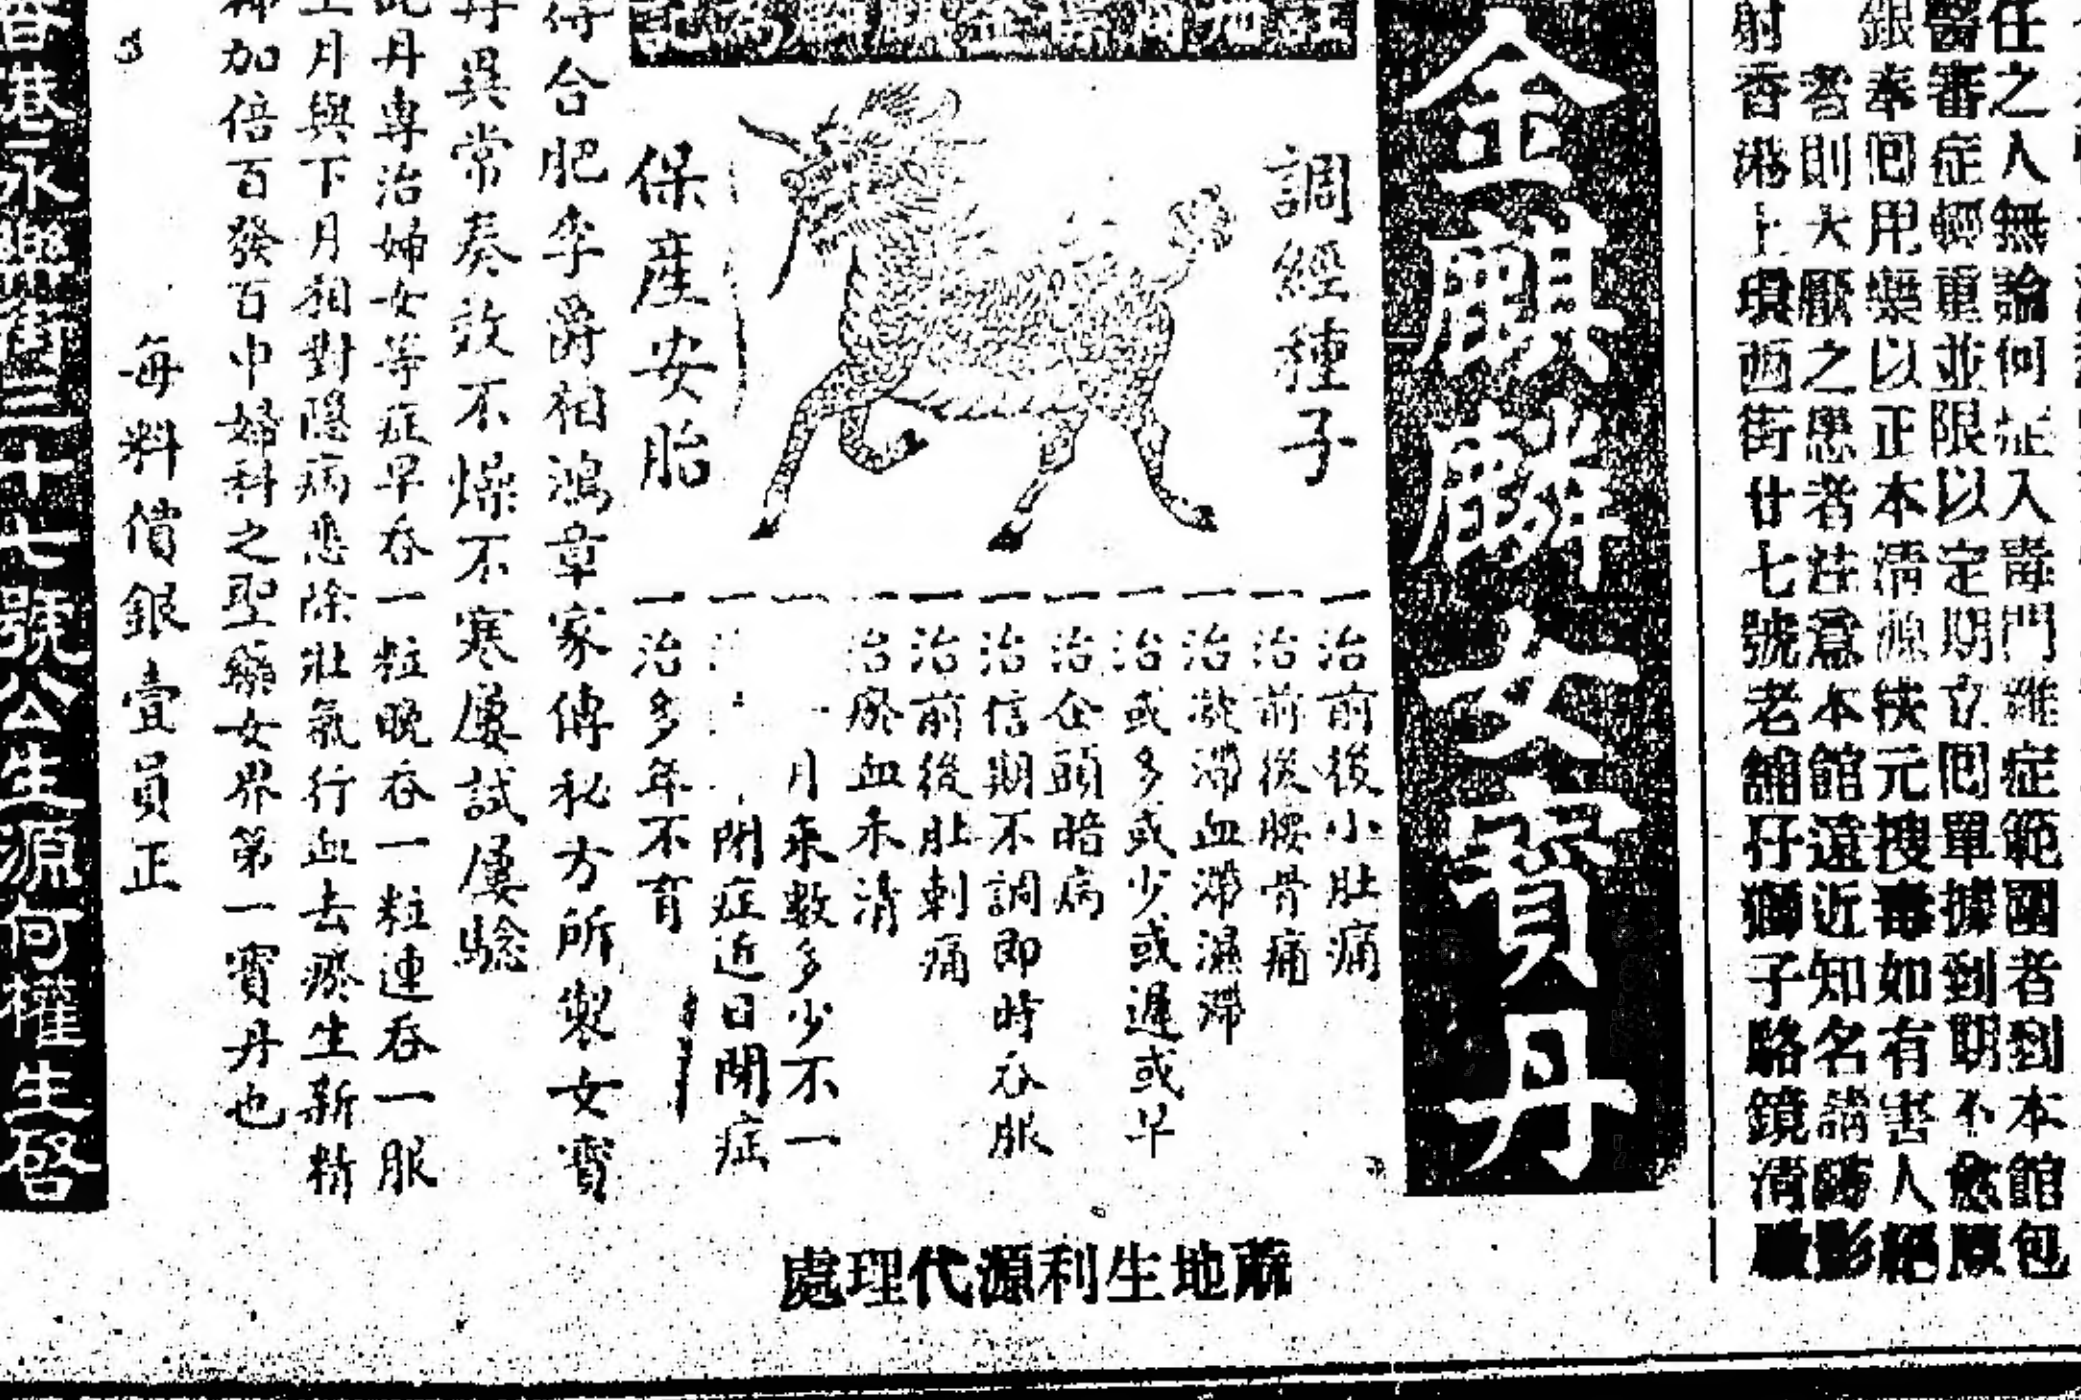 任之人無論何症入毒門雜症範圍者到本館包
醫審症輕重並限以定期立囘單據到期不愈原
銀奉囘用藥以正本清源挾元搜毒如有害人絕
者則大厭之患者注意本館遠近知名請
射香港上環西街廿七號老舖孖獅子駱鏡清
金麒麟女寶丹
調經種子
保產安胎
一治前後小肚痛
一治前後腰骨痛
一治凝滯血滯濕滯
一治或多或少或遲或早
一治企頭暗病
一治信期不調即時吞服
一治前後肚刺痛
一治瘀血未清
一 月來數多少不一
一 閉症近日閉症
一治多年不育
得合肥李爵相鴻章家傳秘方所製女寶
丹異常奏效不燥不寒屢試屢驗
此丹專治婦女等症早吞一粒晚吞一粒連吞一服
上月與下月相對隱病悉除壯氣行血去瘀生新精
神加倍百發百中婦科之聖藥女界第一寶丹也
每料價銀壹員正
香港永樂街三十七號公生源何權生啓
處理代源利生地